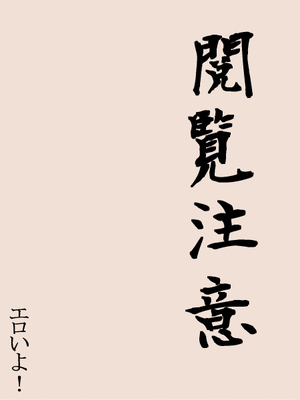 閲覧注意
エロいよ！